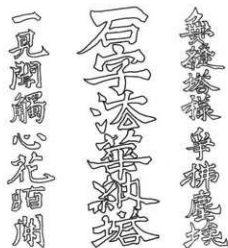 無縫塔樣 擧拂塵境
石字法華納塔
一見聞觸 心花頓開